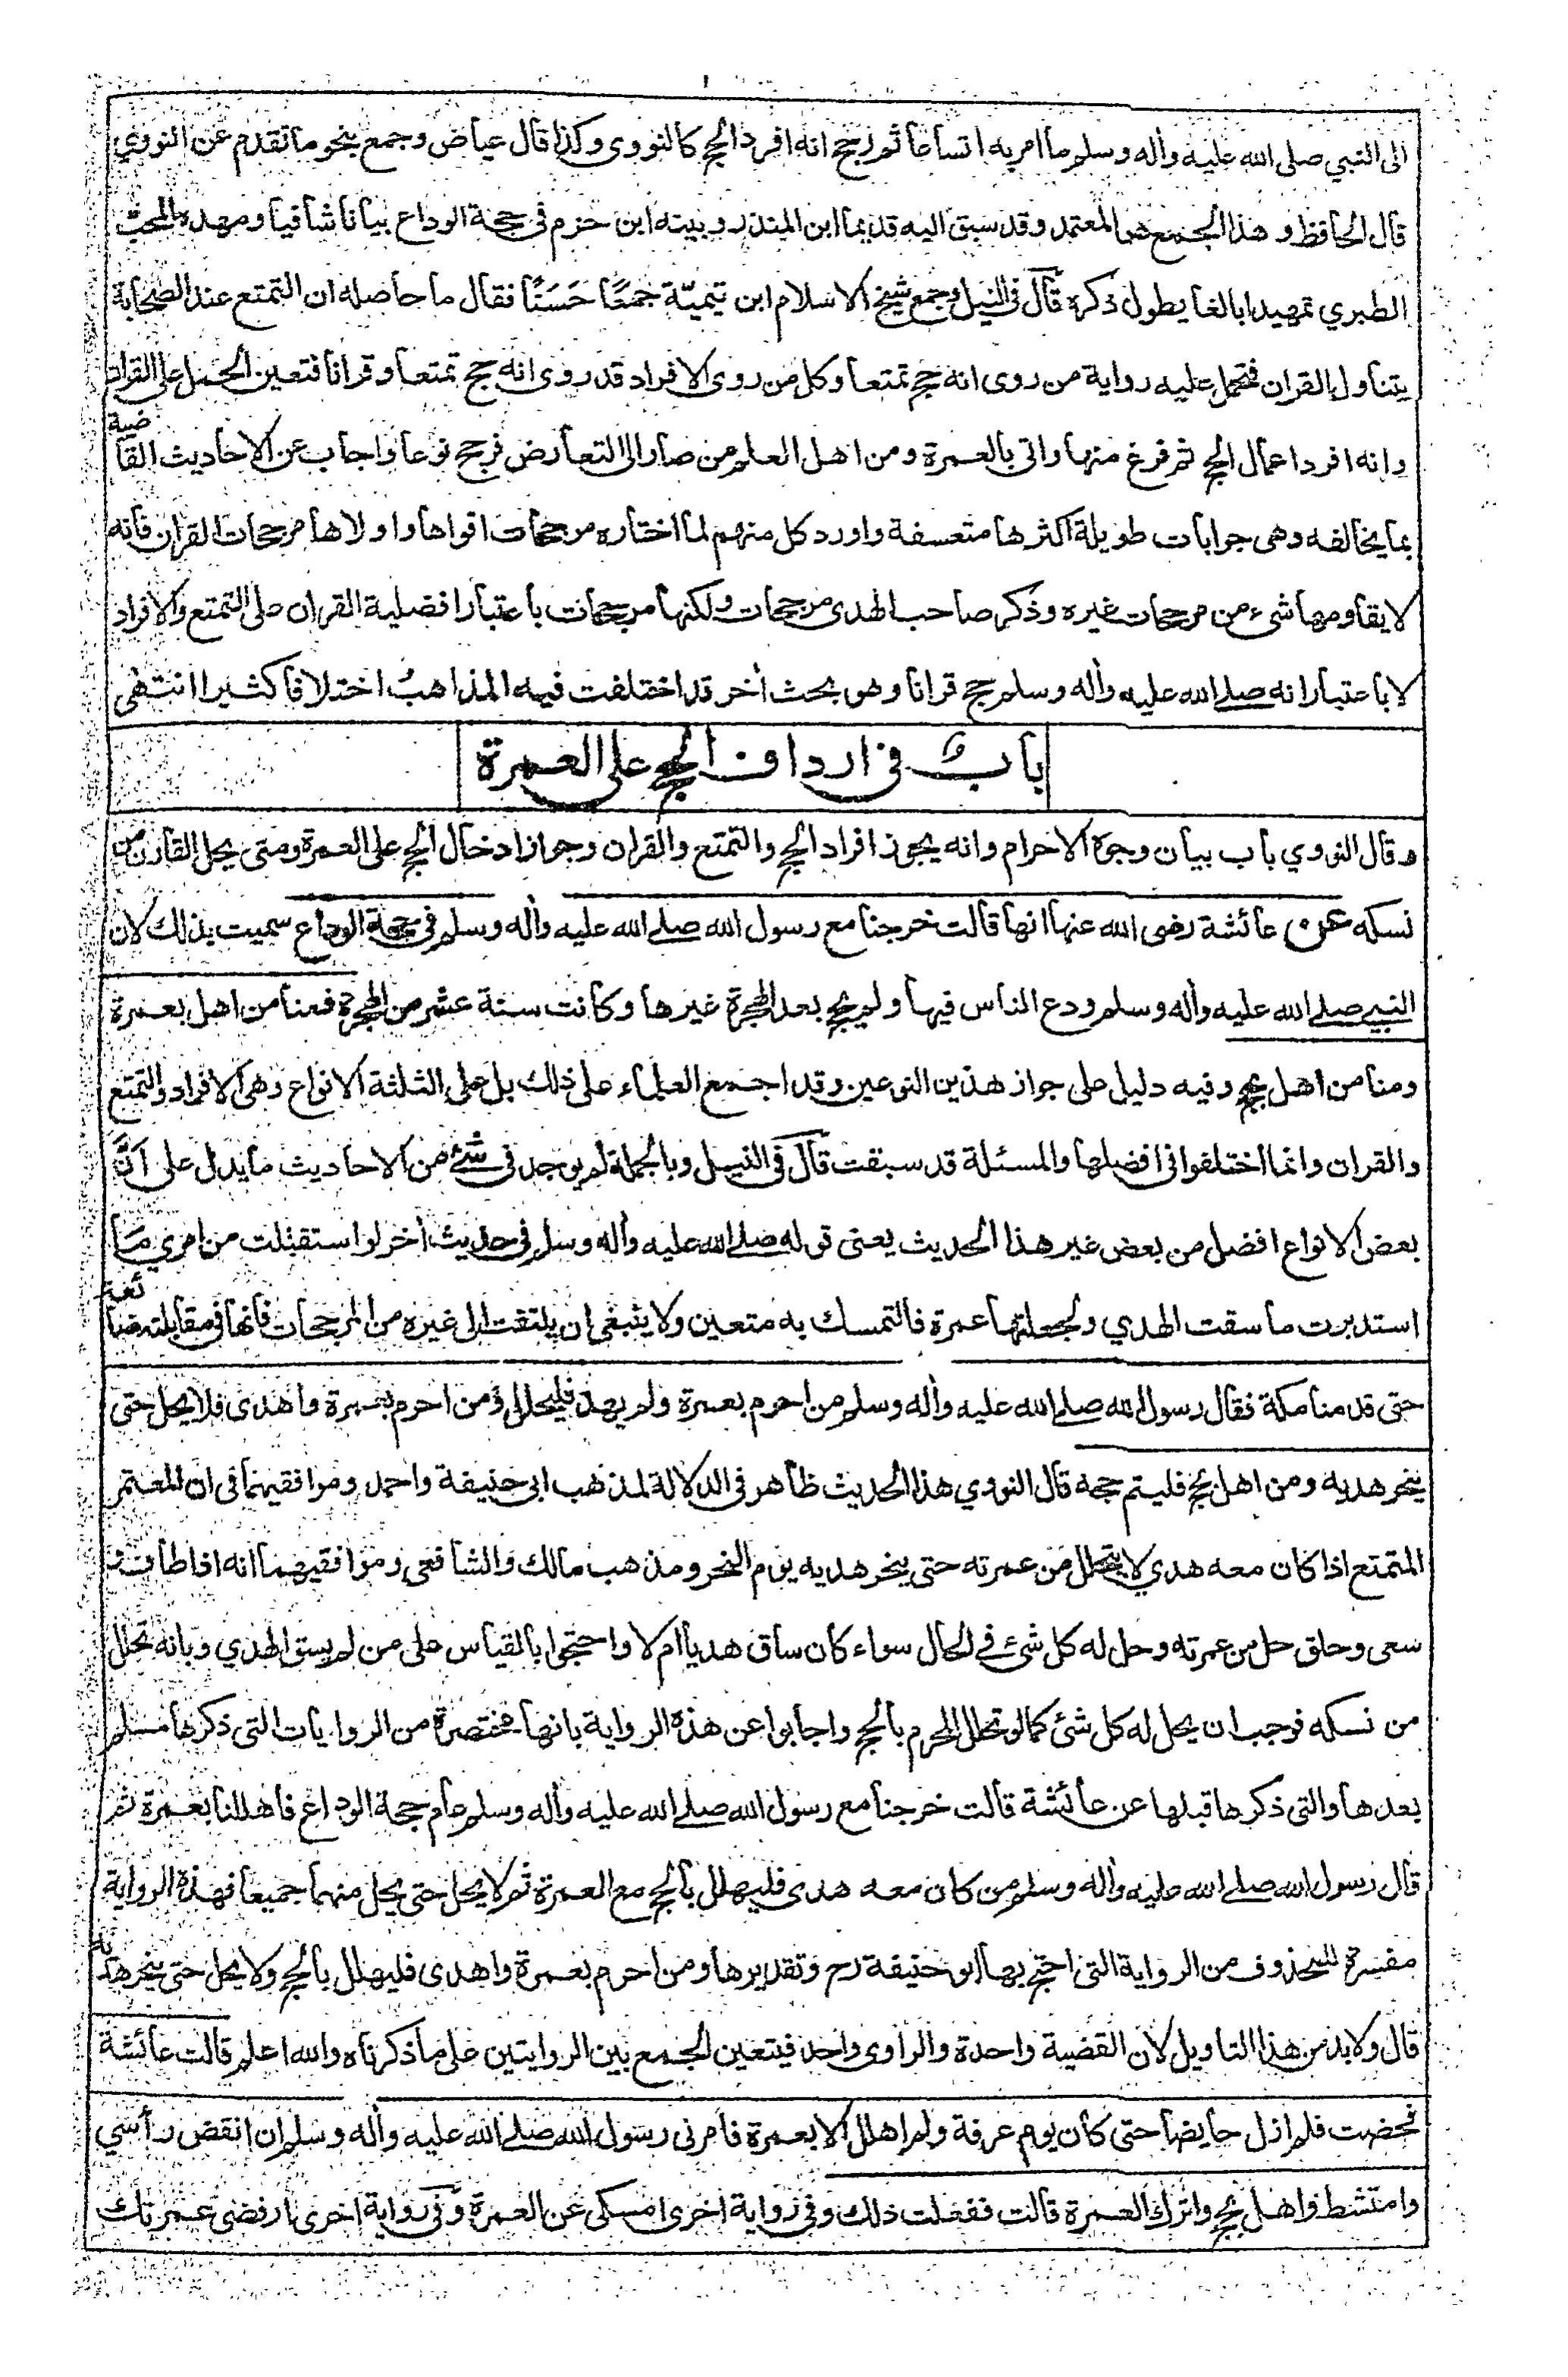 الى النبي صلى الله عليه وأله وسلم ما امر به اتساعا ثم رجح انه افرد الحج كالنووى وكذا قال عياض وجمع بنحو ما تقدم عن النووي
قال الحافظ و هذا الجمع هو المعتمد وقد سبق اليه قديما ابن المنذر وبينه ابن حزم فى حجة الوداع بيانا شافيا ومهده المحب
الطبري تمهيدا بالغا يطول ذكره قال فى النيل وجمع شيخ الاسلام ابن تيميّة جمعًا حَسَنًا فقال ما حاصله ان التمتع عند الصحابة
يتناول القران فتحمل عليه رواية من روى انه حج تمتعا وكل من روى الافراد قد روى انه حج تمتعا وقرانا فتعين الحمل على القران
وانه افرد اعمال الحج ثم فرغ منها واتى بالعمرة ومن اهل العلم من صار الى التعارض فرجح نوعا واجاب عن الاحاديث القاضية
بما يخالفه وهى جوابات طويلة اكثرها متعسفة واورد كل منهم لما اختاره مرجحات اقواها واولاها مرجحات القران فانه
لا يقاومها شىء من مرجحات غيره وذكر صاحب الهدى مرجحات ولكنها مرجحات باعتبار افضلية القران على التمتع والافراد
لا باعتبار انه صلے الله عليه وأله وسلم حج قرانا وهو بحث أخر قد اختلفت فيه المذاهبُ اختلافا كثيرا انتهى
بابٌ فى ارداف الحج على العمرة
وقال النووي باب بيان وجوه الاحرام وانه يجوز افراد الحج والتمتع والقران وجواز ادخال الحج على العمرة ومتى يحل القارن من
نسكه عن عائشة رضى الله عنها انها قالت خرجنا مع رسول الله صلے الله عليه وأله وسلم فى حجة الوداع سميت بذلك لان
النبي صلے الله عليه وأله وسلم ودع الناس فيها ولم يحج بعد الهجرة غيرها وكانت سنة عشر من الهجرة فمنا من اهل بعمرة
ومنا من اهل بحج وفيه دليل على جواز هذين النوعين وقد اجمع العلماء على ذلك بل على الثلثة الانواع وهى الافراد والتمتع
والقران وانما اختلفوا فى افضلها والمسئلة قد سبقت قال فى النيل وبالجملة لم يوجد فى شئ من الاحاديث ما يدل على اَنَّ
بعض الانواع افضل من بعض غير هذا الحديث يعنى قوله صلے الله عليه وأله وسلم فى حديث أخر لو استقبلت من امرى ما
استدبرت ما سقت الهدي ولجعلتها عمرة فالتمسك به متعين ولا ينبغى ان يلتفت الى غيره من المرجحات فانها فى مقابلته ضائعة
حتى قدمنا مكة فقال رسول الله صلے الله عليه وأله وسلم من احرم بعمرة ولم يهد فليحلل ومن احرم بعمرة واهدى فلا يحل حتى
ينحر هديه ومن اهل بحج فليتم حجه قال النووي هذا الحديث ظاهر فى الدلالة لمذهب ابى حنيفة واحمد وموافقيهما فى ان المعتمر
المتمتع اذا كان معه هدي لا يتحلل من عمرته حتى ينحر هديه يوم النحر ومذهب مالك والشافعى وموافقيهما انه اذا طاف و
سعى وحلق حل من عمرته وحل له كل شئ فى الحال سواء كان ساق هديا ام لا واحتجوا بالقياس على من لم يسق الهدي وبانه تحلل
من نسكه فوجب ان يحل له كل شئ كما لو تحلل المحرم بالحج واجابوا عن هذه الرواية بانها مختصرة من الروايات التى ذكرها مسلم
بعدها والتى ذكرها قبلها عن عائشة قالت خرجنا مع رسول الله صلے الله عليه وأله وسلم عام حجة الوداع فاهللنا بعمرة ثم
قال رسول الله صلے الله عليه وأله وسلم من كان معه هدى فليهلل بالحج مع العمرة ثم لا يحل حتى يحل منهما جميعا فهذه الرواية
مفسرة للمحذوف من الرواية التى احتج بها ابو حنيفة رح وتقديرها ومن احرم بعمرة واهدى فليهلل بالحج ولا يحل حتى ينحر هديه
قال ولا بد من هذا التاويل لان القضية واحدة والراوى واحد فيتعين الجمع بين الروايتين على ما ذكرناه والله اعلم قالت عائشة
فحضت فلم ازل حايضا حتى كان يوم عرفة ولم اهلل الا بعمرة فامرنى رسول الله صلے الله عليه وأله وسلم ان انقض رأسي
وامتشط واهل بحج واترك العمرة قالت ففعلت ذلك وفى رواية اخرى امسكى عن العمرة وفى رواية اخرى ارفضى عمرتك